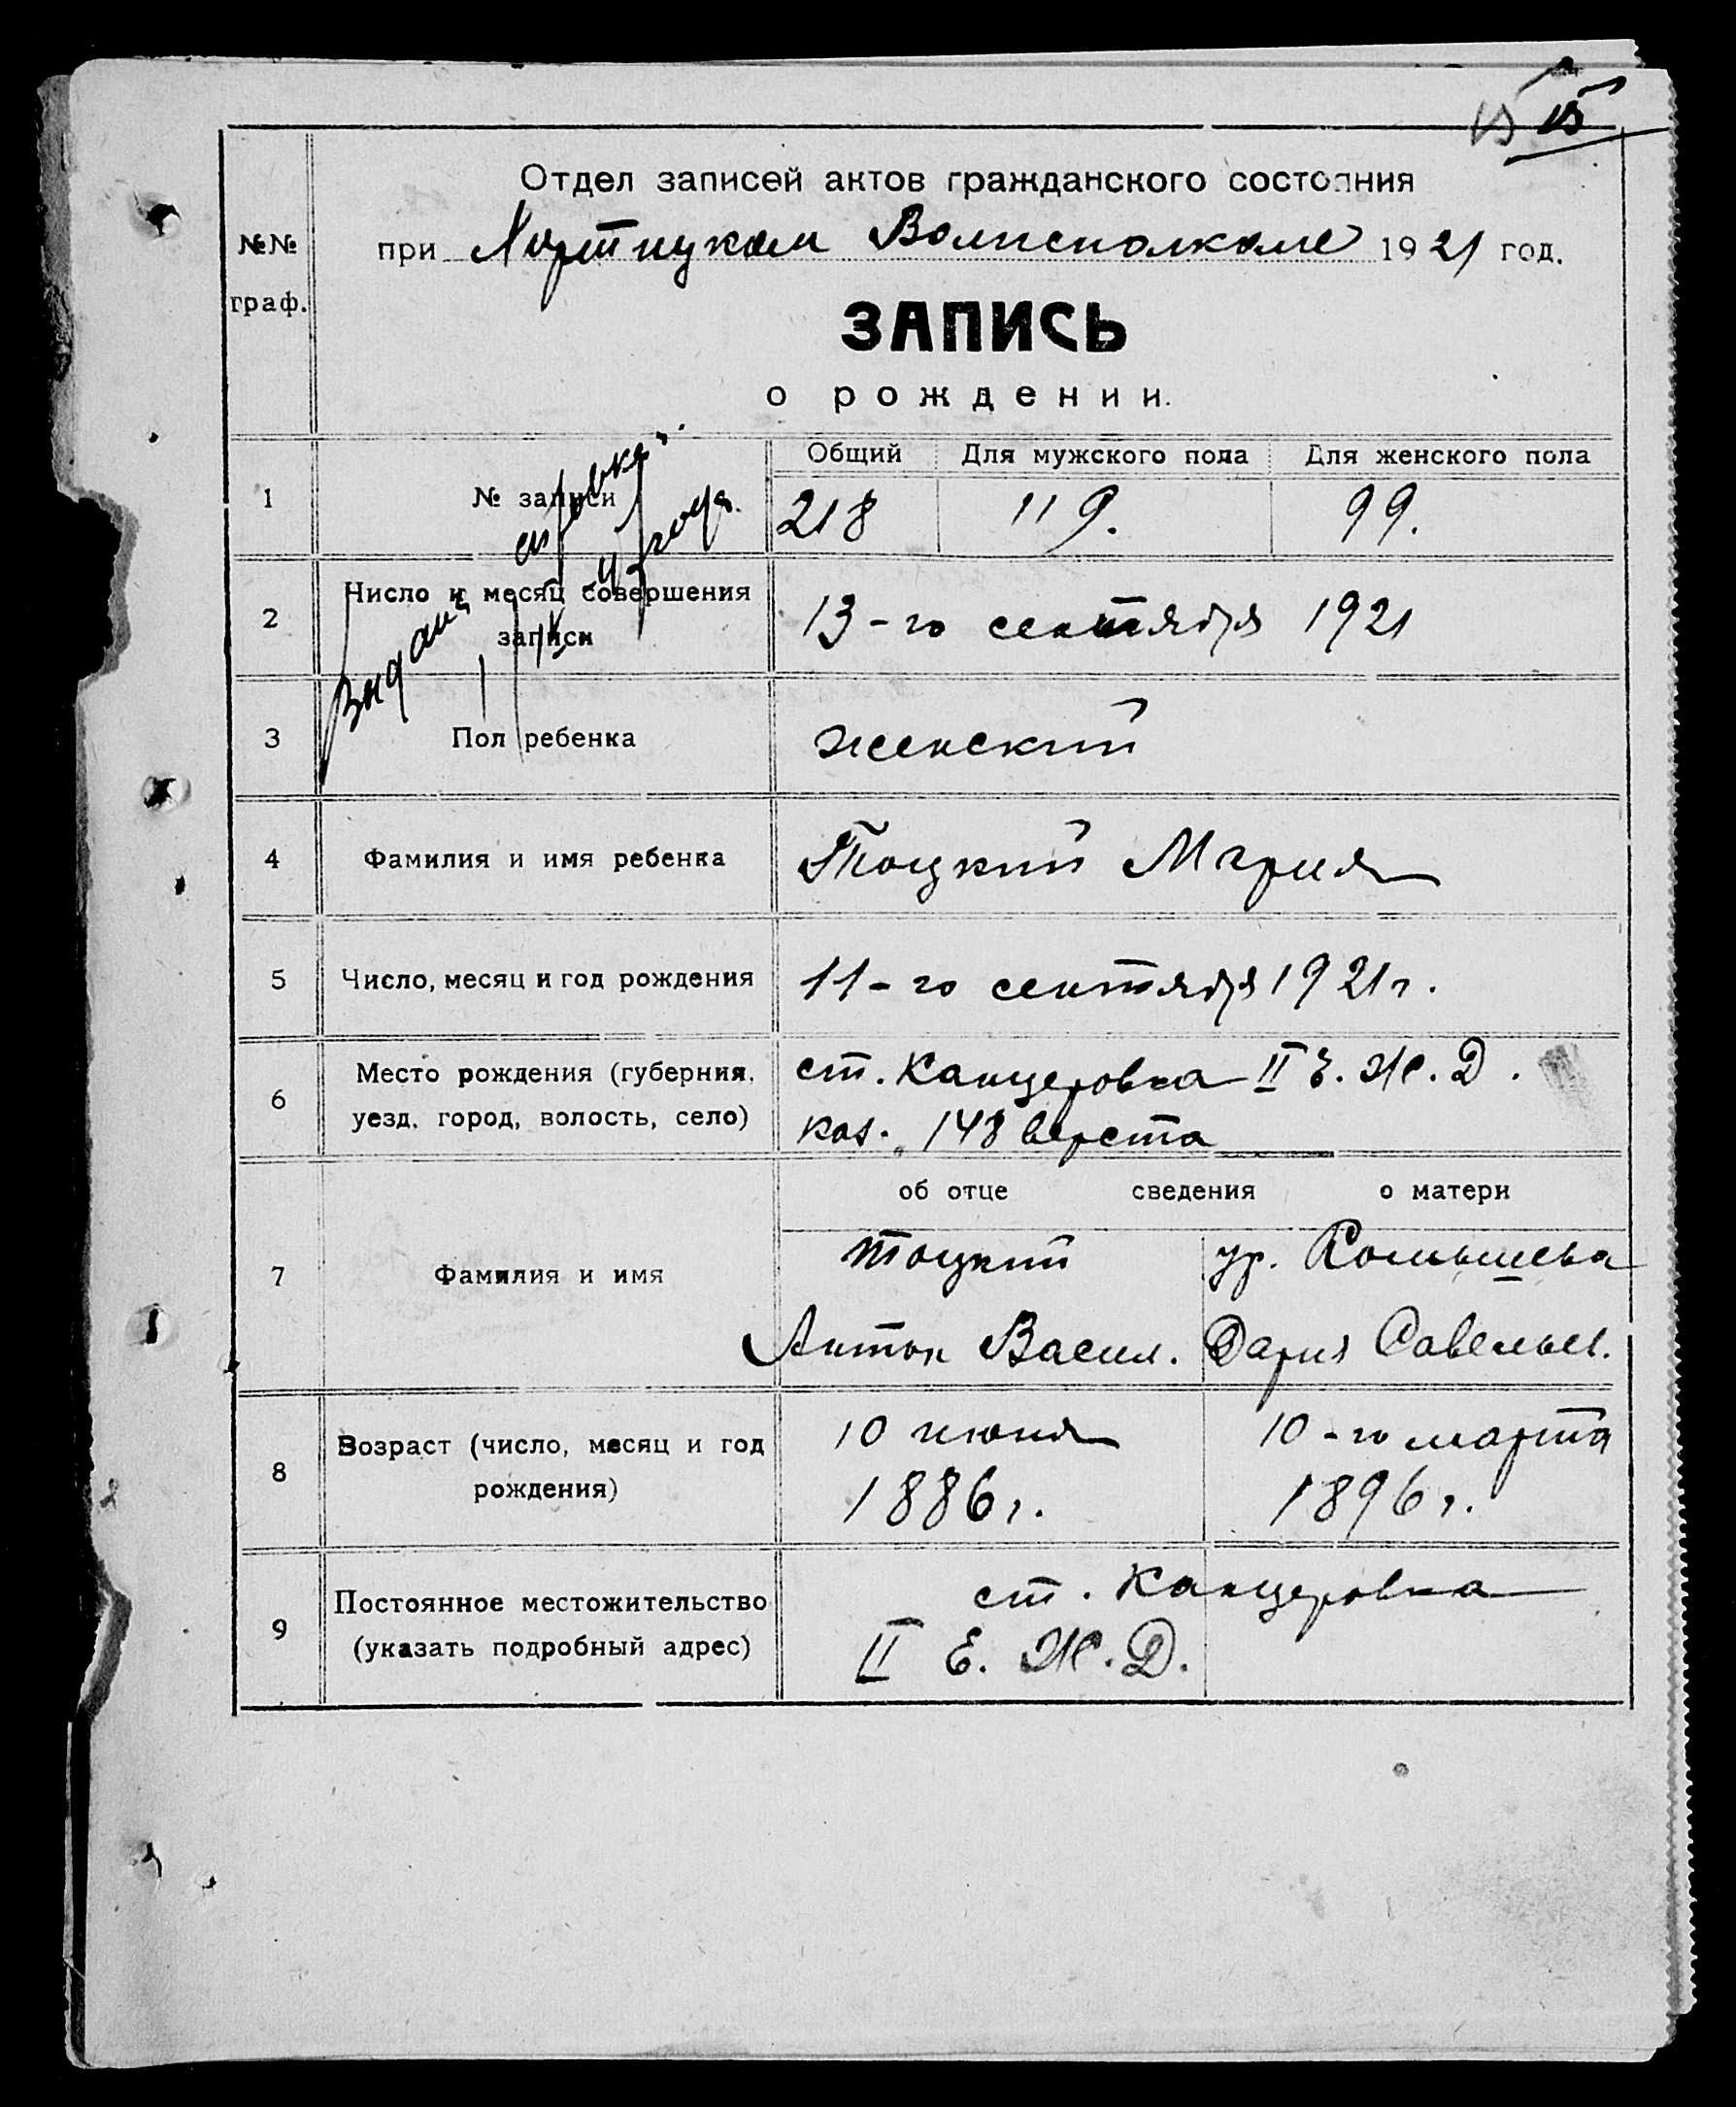 15 15
Отдел записей актов гражданского состояния
№№ граф.
при Хортицком Волисполкоме 1921 год.
ЗАПИСЬ
о рождении.
Общий Для мужского пола Для женского пола
1 № записи 218 119. 99.
Выдана справка
года.
2 Число и месяц совершения записи 13-го сентября 1921
3 Пол ребенка женский
4 Фамилия и имя ребенка Тоцкий Мария
5 Число, месяц и год рождения 11-го сентября 1921 г.
6 Место рождения (губерния, ст. Канцеровка II Е. Ж. Д.
уезд, город, волость, село) каз. 148 верста
об отце сведения о матери
7 Фамилия и имя Тоцкий ур.
Антон Васил. Дария Савельев.
8 Возраст (число, месяц и год 10 июня 10-го марта
рождения) 1886 г. 1896 г.
9 Постоянное местожительство ст. Канцеровка
(указать подробный адрес) II Е. Ж. Д.